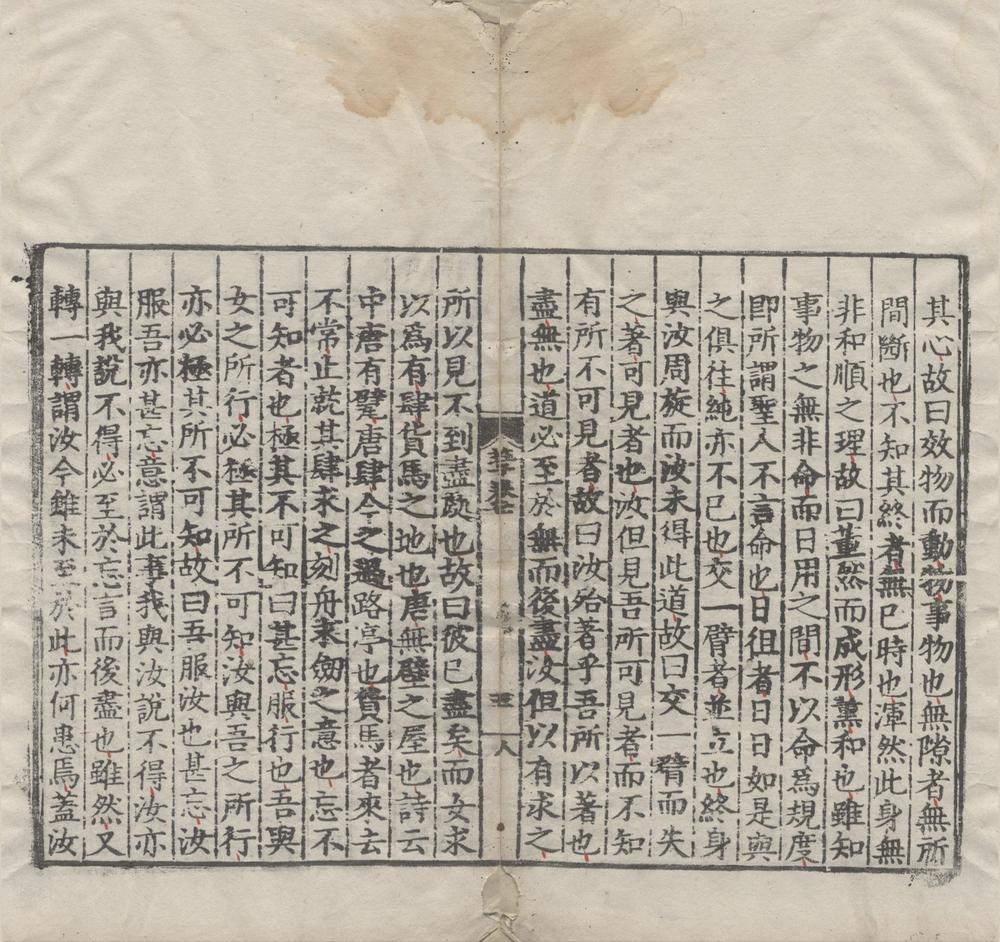 其心故曰效物而動物事物也無隙者無所
間斷也不知其終者無已時也渾然此身無
非和順之理故曰薰然而成形薰和也雖知
事物之無非命而日用之間不以命爲規度
即所謂聖人不言命也日徂者日日如是與
之俱往純亦不已也交一臂者並立也終身
與汝周旋而汝未得此道故曰交一臂而失
之著可見者也汝但見吾所可見者而不知
有所不可見者故曰汝殆著乎吾所以著也
盡無也道必至於無而後盡汝但以有求之
所以見不到盡處也故曰彼已盡矣而女求
以爲有肆貨馬之地也唐無壁之屋也詩云
中唐有甓唐肆今之過路亭也賣馬者來去
不常止就其肆求之刻舟求劒之意也忘不
可知者也極其不可知曰甚忘服行也吾與
女之所行必極其所不可知汝與吾之所行
亦必極其所不可知故曰吾服汝也甚忘汝
服吾亦甚忘意謂此事我與汝說不得汝亦
與我說不得必至於忘言而後盡也雖然又
轉一轉謂汝今雖未至於此亦何患焉蓋汝